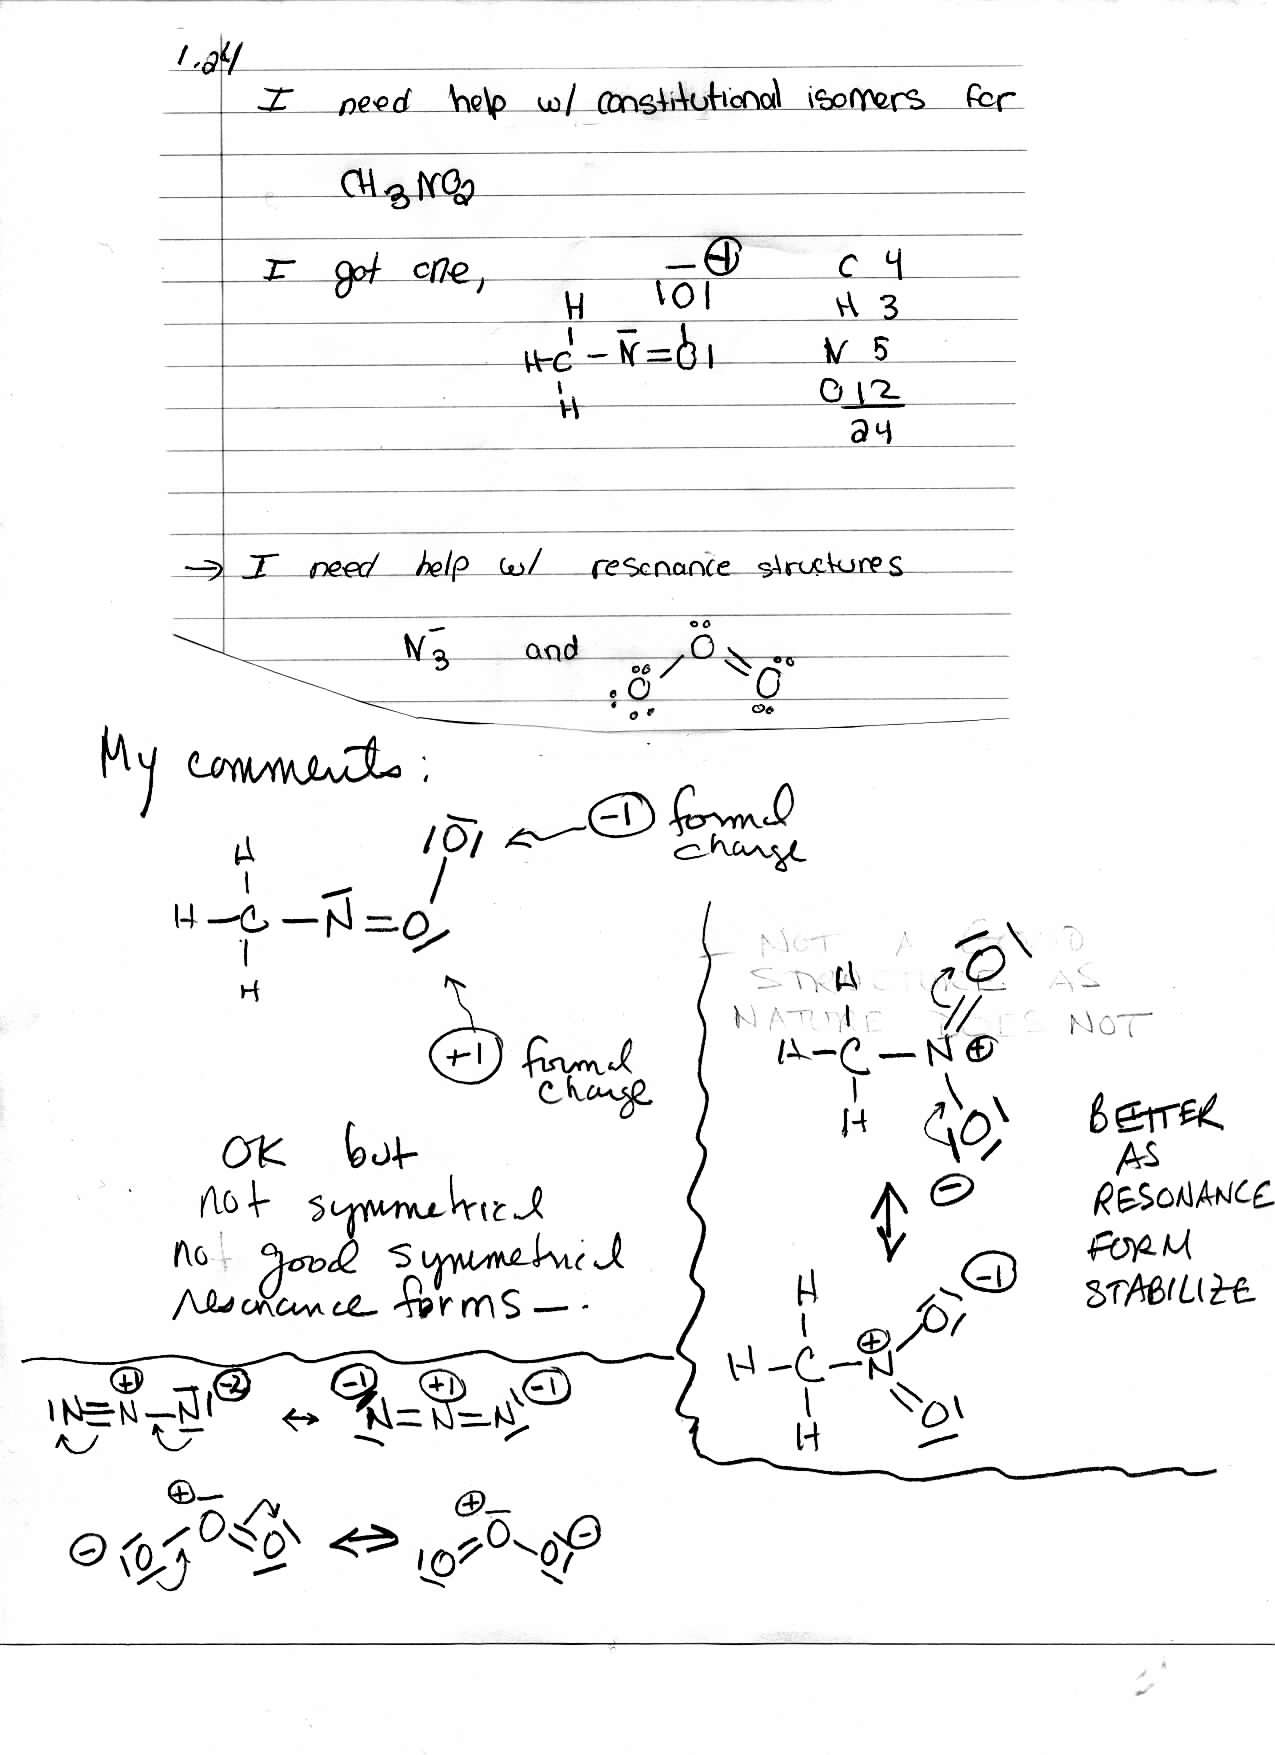 1.24
I need help w/ constitutional isomers for
CH3NO2
I got one,
C 4
H 3
N 5
O 12
24
H
|O|
-1
H-C-N=O|
H
→ I need help w/ resonance structures
N3- and
O
O O
My comments:
|O|
-1 formal
charge
H
H-C-N=O
H
+1 formal
charge
OK but
not symmetrical
not good symmetrical
resonance forms —.
NOT A GOOD
STRUCTURE AS
NATURE DOES NOT
O
H
H-C-N +
H
|O|
-
BETTER
AS
RESONANCE
FORM
STABILIZE
H
O -1
H-C-N +
H
O
|N≡N-N| +1 -2 ↔ N=N=N -1 +1 -1
- O-O=O + ↔ O=O-O + -